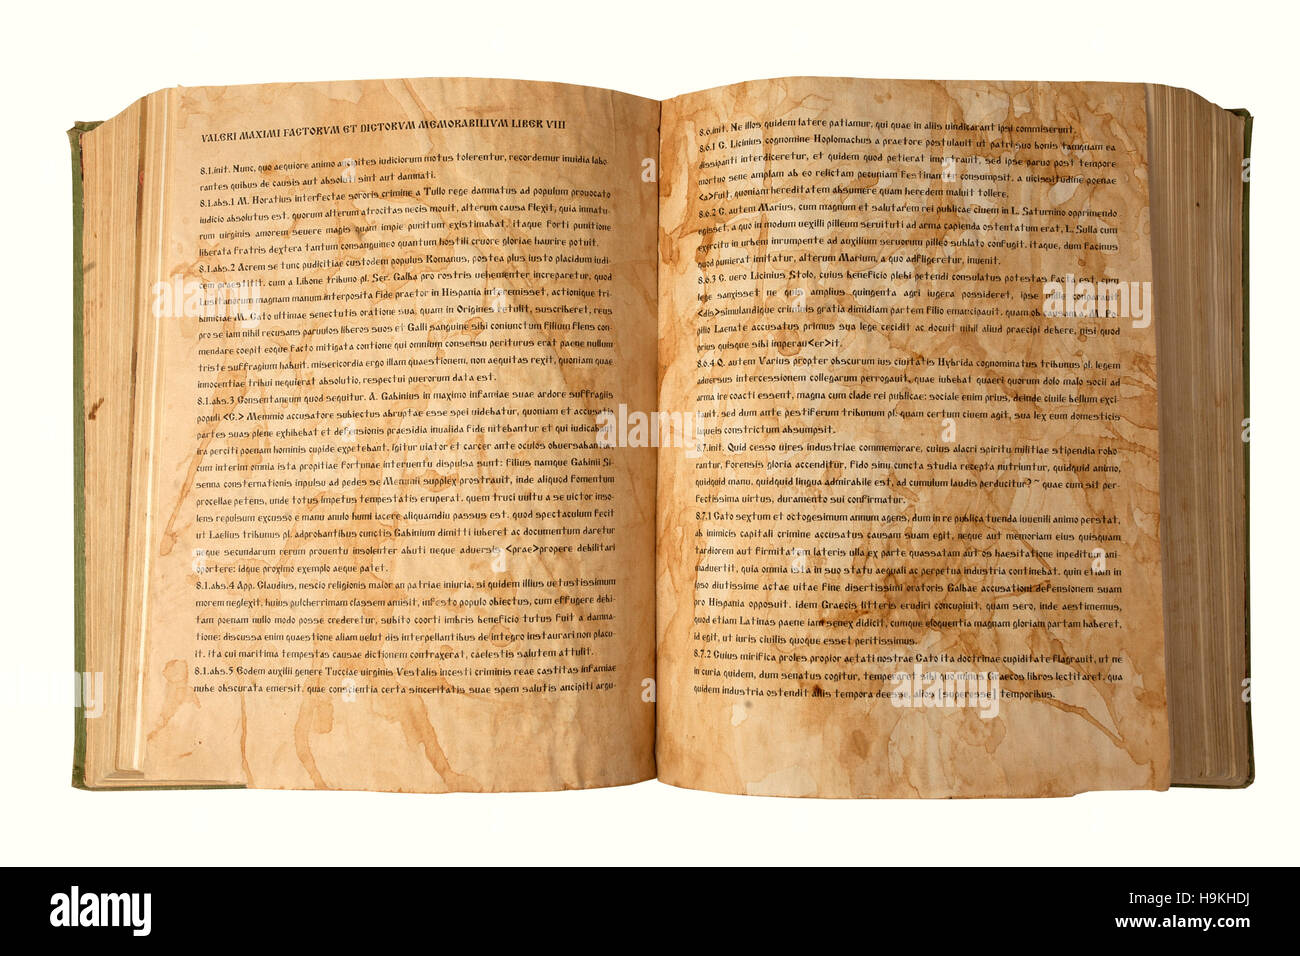 VALERI MAXIMI FACTORVM ET DICTORVM MEMORABILIVM LIBER VIII
8.1.init. Nunc, quo aequiore animo ancipites iudiciorum motus tolerentur, recordemur inuidia labo-
rantes quibus de causis aut absoluti sint aut damnati.
8.1.abs.1 M. Horatius interfectae sororis crimine a Tullo rege damnatus ad populum prouocato
iudicio absolutus est. quorum alterum atrocitas necis mouit, alterum causa flexit, quia inmatu-
rum uirginis amorem seuere magis quam impie punitum existimabat. itaque forti punitione
liberata fratris dextera tantum consanguineo quantum hostili cruore gloriae haurire potuit.
8.1.abs.2 Acrem se tunc pudicitiae custodem populus Romanus, postea plus iusto placidum iudi-
cem praestitit. cum a Libone tribuno pl. Ser. Galba pro rostris uehementer increparetur, quod
Lusitanorum magnam manum interposita fide praetor in Hispania interemisset, actionique tri-
buniciae M. Cato ultimae senectutis oratione sua, quam in Origines retulit, suscriberet, reus
pro se iam nihil recusans paruulos liberos suos et Galli sanguine sibi coniunctum filium flens con-
mendare coepit eoque facto mitigata contione qui omnium consensu periturus erat paene nullum
triste suffragium habuit. misericordia ergo illam quaestionem, non aequitas rexit, quoniam quae
innocentiae tribui nequierat absolutio, respectui puerorum data est.
8.1.abs.3 Consentaneum quod sequitur. A. Gabinius in maximo infamiae suae ardore suffragiis
populi <C.> Memmio accusatore subiectus abruptae esse spei uidebatur, quoniam et accusatio
partes suas plene exhibebat et defensionis praesidia inualida fide nitebantur et qui iudicabant
ira perciti poenam hominis cupide expetebant. igitur uiator et carcer ante oculos obuersabantur,
cum interim omnia ista propitiae fortunae interuentu dispulsa sunt: filius namque Gabinii Si-
senna consternationis inpulsu ad pedes se Memmii supplex prostrauit, inde aliquod fomentum
procellae petens, unde totus impetus tempestatis eruperat. quem truci uultu a se uictor inso-
lens repulsum excusso e manu anulo humi iacere aliquamdiu passus est. quod spectaculum fecit
ut Laelius tribunus pl. adprobantibus cunctis Gabinium dimitti iuberet ac documentum daretur
neque secundarum rerum prouentu insolenter abuti neque aduersis <prae>propere debilitari
oportere: idque proximo exemplo aeque patet.
8.1.abs.4 App. Claudius, nescio religionis maior an patriae iniuria, si quidem illius uetustissimum
morem neglexit, huius pulcherrimam classem amisit, infesto populo obiectus, cum effugere debi-
tam poenam nullo modo posse crederetur, subito coorti imbris beneficio tutus fuit a damna-
tione: discussa enim quaestione aliam uelut dis interpellantibus de integro instaurari non placu-
it. ita cui maritima tempestas causae dictionem contraxerat, caelestis salutem attulit.
8.1.abs.5 Eodem auxilii genere Tucciae uirginis Vestalis incesti criminis reae castitas infamiae
nube obscurata emersit. quae conscientia certa sinceritatis suae spem salutis ancipiti argu-
8.6.init. Ne illos quidem latere patiamur, qui quae in aliis uindicarant ipsi commiserunt.
8.6.1 C. Licinius cognomine Hoplomachus a praetore postulauit ut patri suo bonis tamquam ea
dissipanti interdiceretur, et quidem quod petierat impetrauit, sed ipse paruo post tempore
mortuo sene amplam ab eo relictam pecuniam festinanter consumpsit. a uicissitudine poenae
<a>fuit, quoniam hereditatem absumere quam heredem maluit tollere.
8.6.2 C. autem Marius, cum magnum et salutarem rei publicae ciuem in L. Saturnino opprimendo
egisset, a quo in modum uexilli pilleum seruituti ad arma capienda ostentatum erat, L. Sulla cum
exercitu in urbem inrumpente ad auxilium seruorum pilleo sublato confugit. itaque, dum facinus
quod punierat imitatur, alterum Marium, a quo adfligeretur, inuenit.
8.6.3 C. uero Licinius Stolo, cuius beneficio plebi petendi consulatus potestas facta est, cum
lege sanxisset ne quis amplius quingenta agri iugera possideret, ipse mille conparauit
<dis>simulandique criminis gratia dimidiam partem filio emancipauit. quam ob causam a M. Po-
pilio Laenate accusatus primus sua lege cecidit ac docuit nihil aliud praecipi debere, nisi quod
prius quisque sibi imperau<er>it.
8.6.4 Q. autem Varius propter obscurum ius ciuitatis Hybrida cognominatus tribunus pl. legem
aduersus intercessionem collegarum perrogauit, quae iubebat quaeri quorum dolo malo socii ad
arma ire coacti essent, magna cum clade rei publicae: sociale enim prius, deinde ciuile bellum exci-
tauit. sed dum ante pestiferum tribunum pl. quam certum ciuem agit, sua lex eum domesticis
laqueis constrictum absumpsit.
8.7.init. Quid cesso uires industriae commemorare, cuius alacri spiritu militiae stipendia robo-
rantur, forensis gloria accenditur, fido sinu cuncta studia recepta nutriuntur, quidquid animo,
quidquid manu, quidquid lingua admirabile est, ad cumulum laudis perducitur? ~ quae cum sit per-
fectissima uirtus, duramento sui confirmatur.
8.7.1 Cato sextum et octogesimum annum agens, dum in re publica tuenda iuuenili animo perstat,
ab inimicis capitali crimine accusatus causam suam egit, neque aut memoriam eius quisquam
tardiorem aut firmitatem lateris ulla ex parte quassatam aut os haesitatione inpeditum ani-
maduertit, quia omnia ista in suo statu aequali ac perpetua industria continebat. quin etiam in
ipso diutissime actae uitae fine disertissimi oratoris Galbae accusationi defensionem suam
pro Hispania opposuit. idem Graecis litteris erudiri concupiuit, quam sero, inde aestimemus,
quod etiam Latinas paene iam senex didicit, cumque eloquentia magnam gloriam partam haberet,
id egit, ut iuris ciuilis quoque esset peritissimus.
8.7.2 Cuius mirifica proles propior aetati nostrae Cato ita doctrinae cupiditate flagrauit, ut ne
in curia quidem, dum senatus cogitur, temperaret sibi quo minus Graecos libros lectitaret. qua
quidem industria ostendit aliis tempora deesse, alios [superesse] temporibus.
alamy
Image ID: H9KHDJ
www.alamy.com